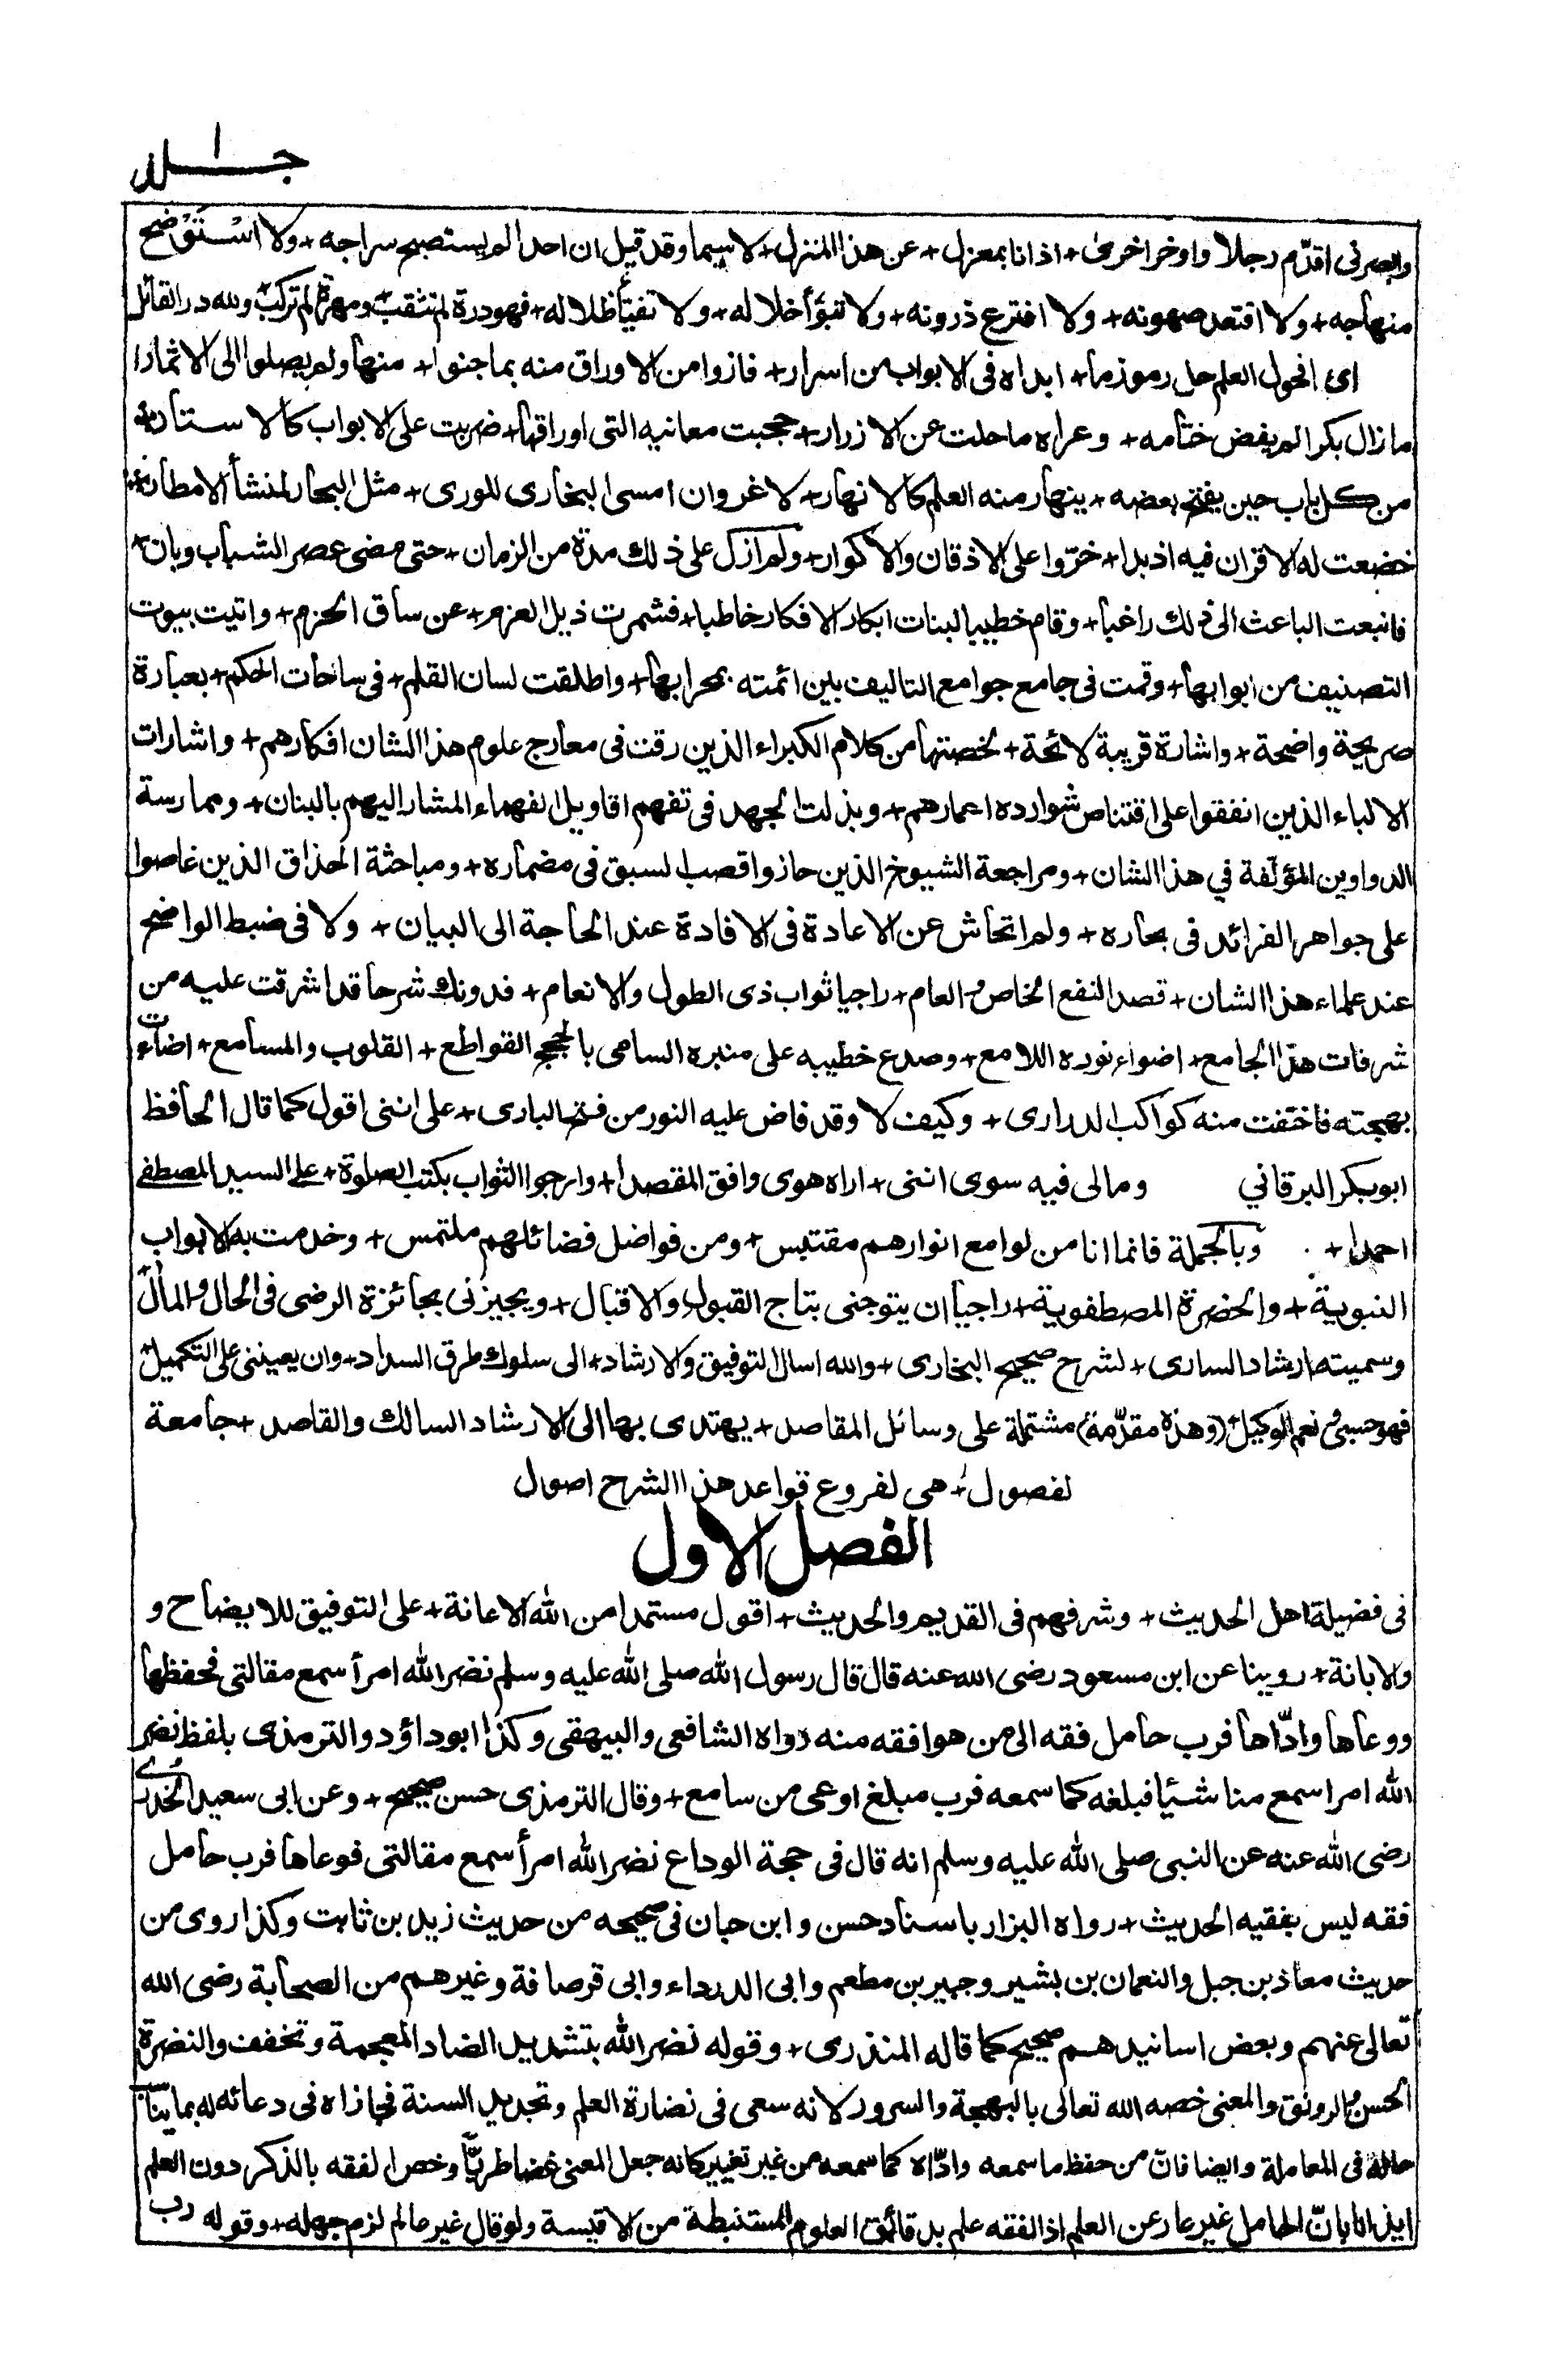 جلد ا
والبصر فى اقدّم رجلا واوخر اخرى + اذ انا بمعزل + عن هذا المنزل + لا سيما وقد قيل ان احدا لم يستصبح سراجه + ولا اسْتَوْضح
منهاجه + ولا اقتعد صهوته + ولا افترع ذروته + ولا تبوّأ خلاله + ولا تفيّأ ظلاله + فهو درة لم تثقب ومهرة لم تركب + ولله در القائل
اعى فحول العلم حل رموز ما + ابداه فى الابواب من اسرار + فازوا من الاوراق منه بما جنوا + منها ولم يصلوا الى الاثمار
ما زال بكرا لم يفض ختامه + وعراه ما حلت عن الازرار + حجبت معانيه التى اوراقها + ضربت على الابواب كالاستار +
من كل باب حين يفتح بعضه + ينهار منه العلم كالانهار + لا غرو ان امسى البخارى للورى + مثل البحار لمنشأ الامطار +
خضعت له الاقران فيه اذ بدا + خرّوا على الاذقان والاكوار + ولم ازل على ذلك مدة من الزمان + حتى مضى عصر الشباب وبان +
فانبعث الباعث الى ذلك راغبا + وقام خطيبا لبنات ابكار الافكار خاطبا + فشمرت ذيل العزم + عن ساق الحزم + واتيت بيوت
التصنيف من ابوابها + وقمت فى جامع جوامع التاليف بين ائمته بمحرابها + واطلقت لسان القلم + فى ساحات الحكم + بعبارة
صريحة واضحة + واشارة قريبة لائحة + لخصتها من كلام الكبراء الذين رقت فى معارج علوم هذا الشان افكارهم + واشارات
الالباء الذين انفقوا على اقتناص شوارده اعمارهم + وبذلت الجهد فى تفهم اقاويل الفهماء المشار اليهم بالبنان + وممارسة
الدواوين المؤلفة في هذا الشان + ومراجعة الشيوخ الذين حازوا قصب السبق فى مضماره + ومباحثة الحذاق الذين غاصوا
على جواهر الفرائد فى بحاره + ولم اتحاش عن الاعادة فى الافادة عند الحاجة الى البيان + ولا فى ضبط الواضح
عند علماء هذا الشان + قصد النفع الخاص والعام + راجيا ثواب ذى الطول والانعام + فدونك شرحا قد اشرقت عليه من
شرفات هذا الجامع + اضواء نوره اللامع + وصدع خطيبه على منبره السامى بالحجج القواطع + القلوب والمسامع + اضاءت
بهجته فاختفت منه كواكب الدرارى + وكيف لا وقد فاض عليه النور من فتح البارى + على اننى اقول كما قال الحافظ
ابوبكر البرقاني ومالى فيه سوى اننى + اراه هوى وافق المقصدا + وارجوا الثواب بكتب الصلوة + على السيد المصطفى
احمدا + وبالجملة فانما انا من لوامع انوارهم مقتبس + ومن فواضل فضائلهم ملتمس + وخدمت به الابواب
النبوية + والحضرة المصطفوية + راجيا ان يتوجنى بتاج القبول والاقبال + ويجيزنى بجائزة الرضى فى الحال والمآل +
وسميته ارشاد السارى + لشرح صحيح البخارى + والله اسال التوفيق والارشاد + الى سلوك طرق السداد + وان يعيننى على التكميل +
فهو حسبى ونعم الوكيل + (وهذه مقدّمة) مشتملة على وسائل المقاصد + يهتدى بها الى الارشاد السالك والقاصد + جامعة
لفصول + هى لفروع قواعد هذا الشرح اصول
الفصل الاول
فى فضيلة اهل الحديث + وشرفهم فى القديم والحديث + اقول مستمدا من الله الاعانة + على التوفيق للايضاح و
والابانة + روينا عن ابن مسعود رضى الله عنه قال قال رسول الله صلى الله عليه وسلم نضر الله امرأ سمع مقالتى فحفظها
ووعاها وادّاها فرب حامل فقه الى من هو افقه منه رواه الشافعى والبيهقى وكذا ابوداؤد والترمذى بلفظ نضر
الله امرا سمع منا شيئا فبلغه كما سمعه فرب مبلغ اوعى من سامع + وقال الترمذى حسن صحيح + وعن ابى سعيد الخُدرى
رضى الله عنه عن النبى صلى الله عليه وسلم انه قال فى حجة الوداع نضر الله امرأ سمع مقالتى فوعاها فرب حامل
فقه ليس بفقيه الحديث + رواه البزار باسناد حسن وابن حبان فى صحيحه من حديث زيد بن ثابت وكذا روى من
حديث معاذ بن جبل والنعمان بن بشير وجبير بن مطعم وابى الدرداء وابى قرصافة وغيرهم من الصحابة رضى الله
تعالى عنهم وبعض اسانيدهم صحيح كما قاله المنذرى + وقوله نضر الله بتشديد الضاد المعجمة وتخفف والنضرة
الحسن والرونق والمعنى خصه الله تعالى بالبهجة والسرور لانه سعى فى نضارة العلم وتجديد السنة فجازاه فى دعائه له بما يناسب
حاله فى المعاملة وايضا فانّ من حفظ ما سمعه وادّاه كما سمعه من غير تغيير كانه جعل المعنى غضا طريّا وخص الفقه بالذكر دون العلم
ايذانا بانّ الحامل غير عار عن العلم اذ الفقه علم بدقائق العلوم المستنبطة من الاقيسة ولو قال غير عالم لزم جهله + وقوله رب